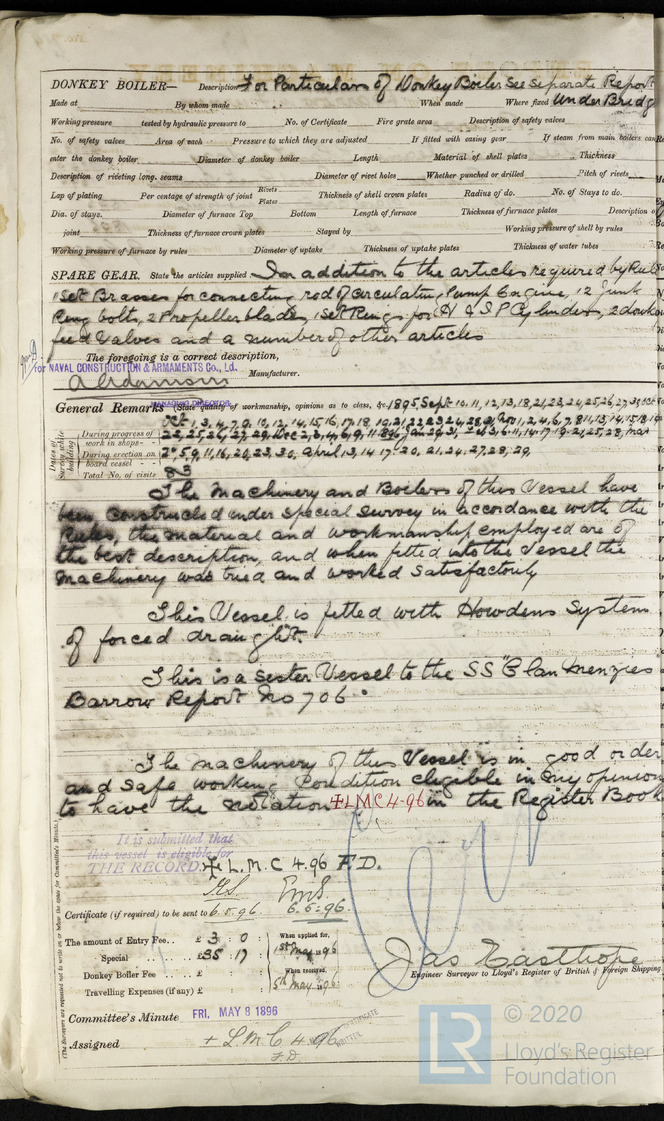 DONKEY BOILER— Description For Particulars of Donkey Boiler See separate Report
Made at By whom made When made Where fixed Under Bridg
Working pressure tested by hydraulic pressure to No. of Certificate Fire grate area Description of safety valves
No. of safety valves Area of each Pressure to which they are adjusted If fitted with easing gear If steam from main boilers can
enter the donkey boiler Diameter of donkey boiler Length Material of shell plates Thickness
Description of riveting long. seams Diameter of rivet holes Whether punched or drilled Pitch of rivets
Lap of plating Per centage of strength of joint Rivets Plates Thickness of shell crown plates Radius of do. No. of Stays to do.
Dia. of stays. Diameter of furnace Top Bottom Length of furnace Thickness of furnace plates Description of
joint Thickness of furnace crown plates Stayed by Working pressure of shell by rules
Working pressure of furnace by rules Diameter of uptake Thickness of uptake plates Thickness of water tubes
SPARE GEAR. State the articles supplied In addition to the articles required by Rul
1 Set Brasses for connecting rod of circulating Pump Engine, 12 Junk
Ring bolts, 2 Propeller blades, 1 Set Rings for H & I P Cylinders, 2 donk
feed Valves and a number of other articles
The foregoing is a correct description,
for NAVAL CONSTRUCTION & ARMAMENTS Co., Ld.
A Adamson Manufacturer.
MANAGING DIRECTOR
General Remarks (State quality of workmanship, opinions as to class, &c. 1895. Sept 10, 11, 12, 13, 18, 21, 23, 24, 25, 26, 27, 30
Oct 1, 3, 4, 7, 9, 10, 12, 14, 15, 16, 17, 18, 19, 21, 22, 23, 24, 28, 31 Nov 1, 2, 4, 6, 7, 8, 11, 13, 14, 15, 18, 19
Dates of Survey while building
During progress of work in shops - 22, 25, 26, 27, 29, Dec 2, 3, 4, 6, 9, 11 1896 Jan 29, 31, Feb 3, 6, 11, 14, 17, 19, 21, 25, 28, Mar
During erection on board vessel - 2, 5, 9, 11, 16, 20, 23, 30, April, 13, 14, 17, 20, 21, 24, 27, 28, 29,
Total No. of visits 83
The Machinery and Boilers of this Vessel have
been constructed under Special Survey in accordance with the
Rules, the material and workmanship employed are of
the best description, and when fitted into the Vessel the
machinery was tried and worked satisfactorily
This Vessel is fitted with Howdens System
of forced draught.
This is a sister Vessel to the SS "Clan Menzies
Barrow Report No 706.
The machinery of this Vessel is in good order
and safe working Condition eligible in my opinion
to have the notation + LMC 4-96 in the Register Book
It is submitted that
this vessel is eligible for
THE RECORD. + L.M.C 4.96 F.D.
6.5.96.
Certificate (if required) to be sent to 6.5.96
The amount of Entry Fee.. £ 3 : 0 : When applied for,
Special .. £35 : 17 : 1st May 1896
Donkey Boiler Fee .. £ : : When received,
Travelling Expenses (if any) £ : : 5th May 1896
Jas Easthope
Engineer Surveyor to Lloyd's Register of British & Foreign Shipping
Committee's Minute FRI, MAY 8 1896
Assigned + L M C 4 96
F.D.
CERTIFICATE WRITTEN
(The Surveyors are requested not to write on or below the space for Committee's Minute.)
LR
© 2020
Lloyd's Register
Foundation